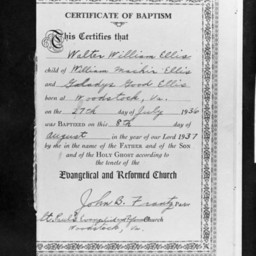 CERTIFICATE OF BAPTISM
This Certifies that
Walter William Ellis
child of William Ellis
and Good Ellis
born at Woodstock, Va.
on the 27th day of July 1936
was BAPTISED on this 8th day of
August in the year of our Lord 1937
by do in the name of the FATHER and of the SON
and of the HOLY GHOST according to
the tenets of the
Evangelical and Reformed Church
John B. Frantz
St. Paul's Evangelical & Reformed Church
Woodstock, Va.